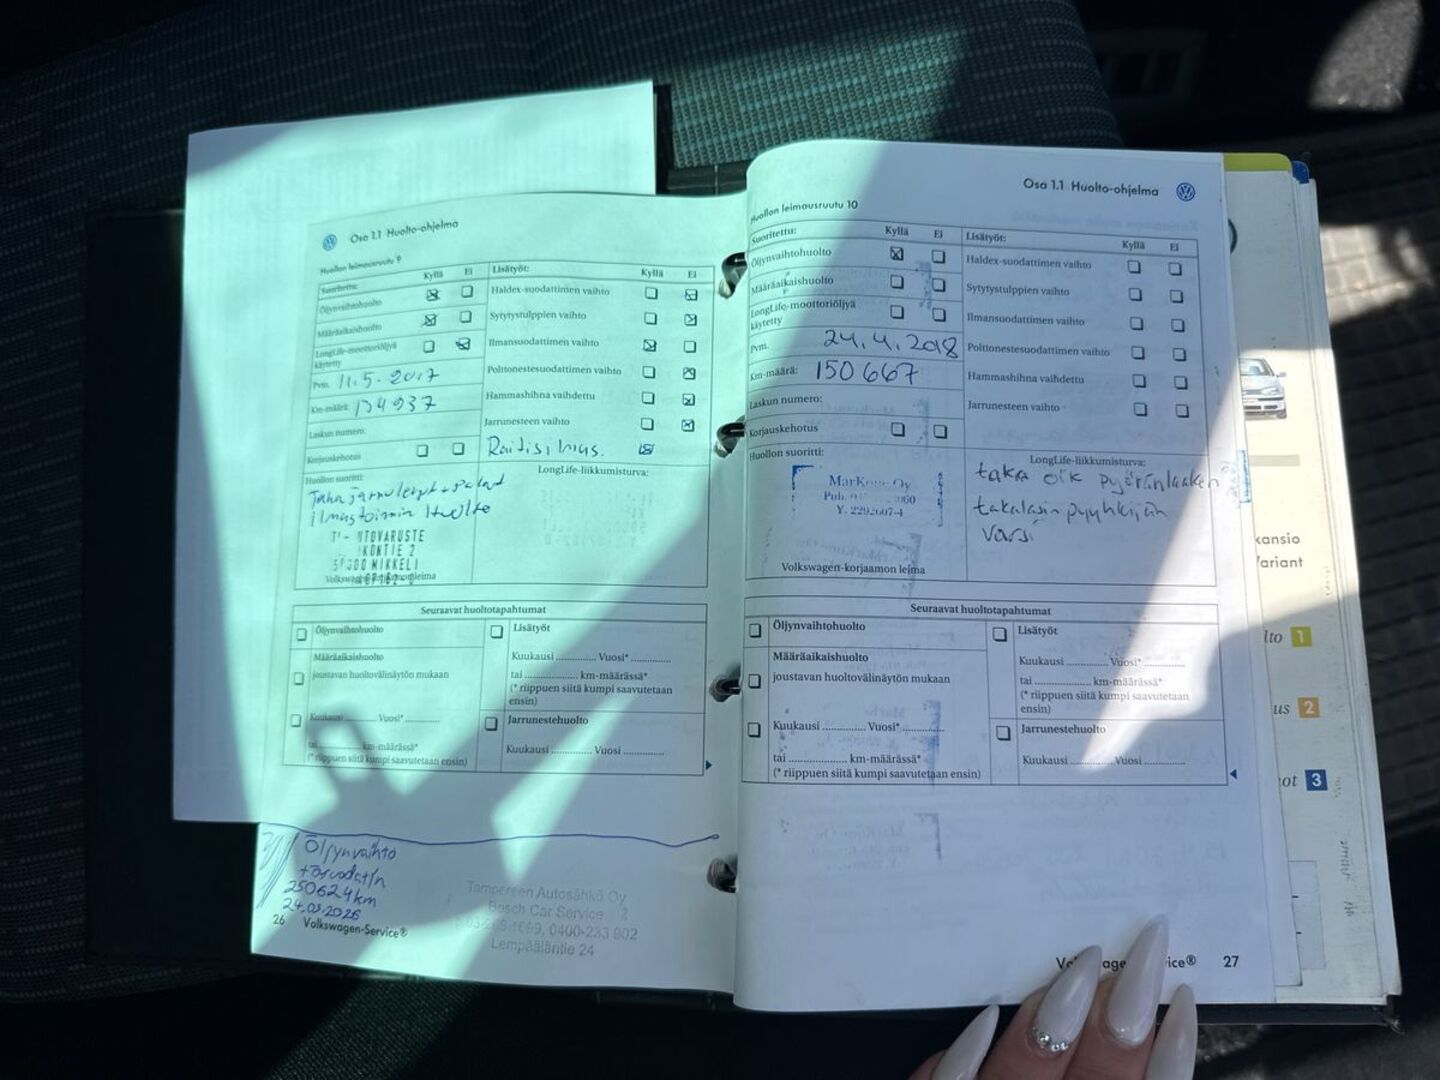 Osa 1.1 Huolto-ohjelma
Huollon leimausruutu 9
Suoritettu: Kyllä Ei
Öljynvaihtohuolto
Määräaikaishuolto
LongLife-moottoriöljyä
käytetty
Pvm. 11.5.2017
Km-määrä:
Laskun numero:
Korjauskehotus
Huollon suoritti:
ilmastoinnin huolto
KONTIE 2
MIKKELI
Lisätyöt: Kyllä Ei
Haldex-suodattimen vaihto
Sytytystulppien vaihto
Ilmansuodattimen vaihto
Polttonestesuodattimen vaihto
Hammashihna vaihdettu
Jarrunesteen vaihto
LongLife-liikkumisturva:
Seuraavat huoltotapahtumat
Öljynvaihtohuolto
Määräaikaishuolto
joustavan huoltovälinäytön mukaan
Kuukausi ............ Vuosi* ............
tai ............ km-määrässä*
(* riippuen siitä kumpi saavutetaan ensin)
Lisätyöt
Kuukausi ............ Vuosi* ............
tai ............ km-määrässä*
(* riippuen siitä kumpi saavutetaan
ensin)
Jarrunestehuolto
Kuukausi ............ Vuosi ............
Öljynvaihto
250624km
24.03.2026
Tampereen Autosähkö Oy
Bosch Car Service
0400-233 902
Lempääläntie 24
26 Volkswagen-Service®
Osa 1.1 Huolto-ohjelma
Huollon leimausruutu 10
Suoritettu: Kyllä Ei
Öljynvaihtohuolto
Määräaikaishuolto
LongLife-moottoriöljyä
käytetty
Pvm. 24.4.2018
Km-määrä: 150667
Laskun numero:
Korjauskehotus
Huollon suoritti:
Volkswagen-korjaamon leima
Lisätyöt: Kyllä Ei
Haldex-suodattimen vaihto
Sytytystulppien vaihto
Ilmansuodattimen vaihto
Polttonestesuodattimen vaihto
Hammashihna vaihdettu
Jarrunesteen vaihto
LongLife-liikkumisturva:
taka oik pyöränlaakeri
takalasin pyyhkijän
varsi
Seuraavat huoltotapahtumat
Öljynvaihtohuolto
Määräaikaishuolto
joustavan huoltovälinäytön mukaan
Kuukausi ............ Vuosi* ............
tai ............ km-määrässä*
(* riippuen siitä kumpi saavutetaan ensin)
Lisätyöt
Kuukausi ............ Vuosi* ............
tai ............ km-määrässä*
(* riippuen siitä kumpi saavutetaan
ensin)
Jarrunestehuolto
Kuukausi ............ Vuosi ............
27
1
2
3